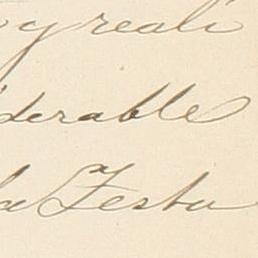 y reali
derable
la Festa